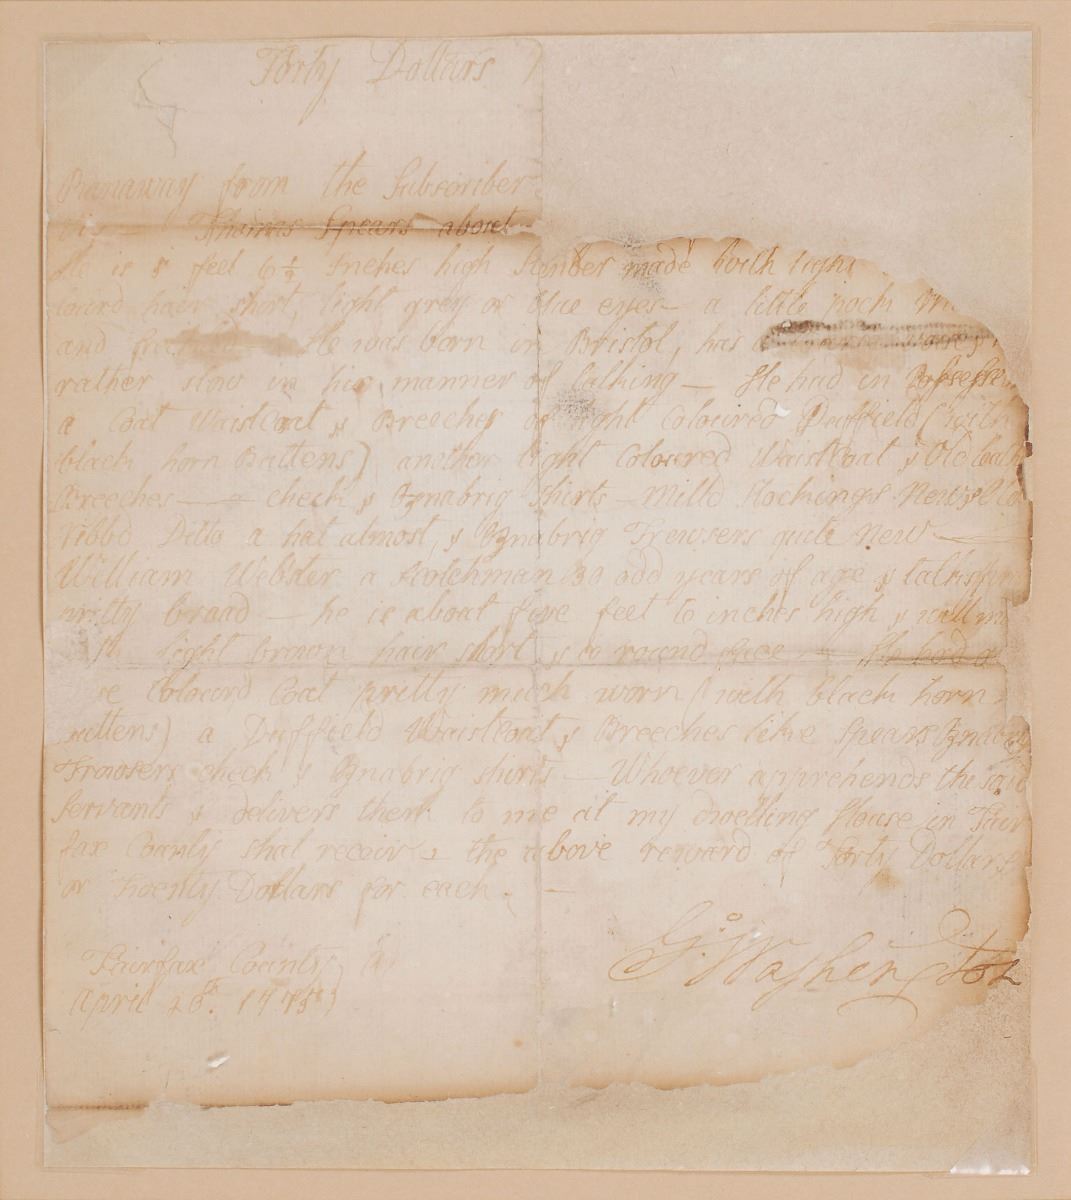 Forty Dollars
Runaway from the Subscriber
Thomas Spears about
He is 5 feet 6½ Inches high Slender made with light
hair short, light grey or blue eyes — a little pock
and He was born in Bristol, has
rather slow in his manner of talking — He had in
a Coat Waistcoat & Breeches of light Coloured Duffield (with
black horn Buttens) another light Coloured Waistcoat & Old
Breeches — check & Oznabrig Shirts — Mill'd Stockings New & Old
ribbd Ditto a hat almost, & Oznabrig Trowsers quite New —
William Webster a Scotchman 30 odd years of age & talks
pritty broad — he is about five feet 6 inches high, & well
light brown hair short & a round face — He had a
Colourd Coat pretty much worn (with black horn
) a Duffield Waistcoat & Breeches like Spears
Trowsers check & Oznabrig Shirts — Whoever apprehends the said
Servants & delivers them to me at my dwelling House in Fair
fax County shal receive the above reward of Forty Dollars
or Twenty Dollars for each. —
G:Washington
Fairfax County
April 26th. 1775